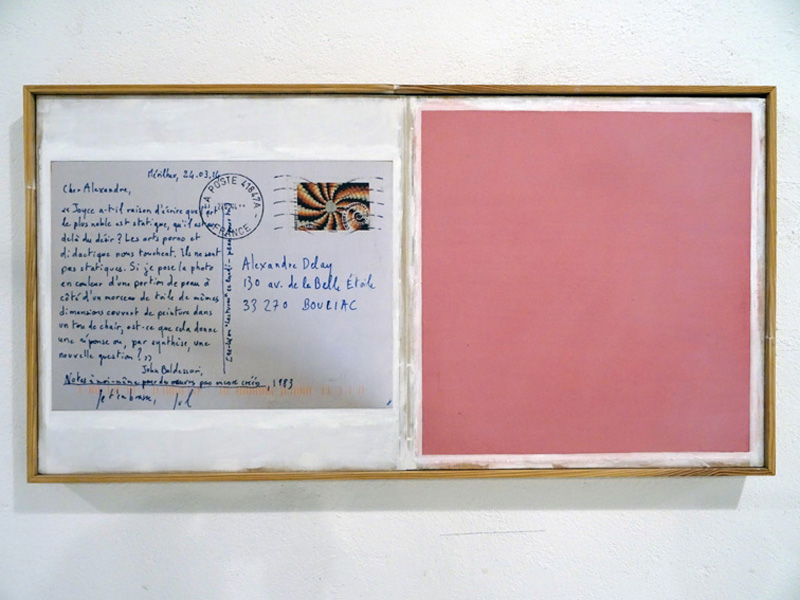 Mérilhac, 24.03.14
Cher Alexandre,
« Joyce a-t-il raison d'écrire que l'art
le plus noble est statique, qu'il est au-
delà du désir ? Les arts porno et
didactique nous touchent. Ils ne sont
pas statiques. Si je pose la photo
en couleur d'une portion de peau à
côté d'un morceau de toile de mêmes
dimensions couvert de peinture dans
un ton de chair, est-ce que cela donne
une réponse ou, par synthèse, une
nouvelle question ? »
John Baldessari,
Notes à moi-même pour des œuvres pas encore créées, 1983
Je t'embrasse,
LA POSTE 41847A
FRANCE
Alexandre Delay
130 av. de la Belle Étoile
33 270 BOULIAC